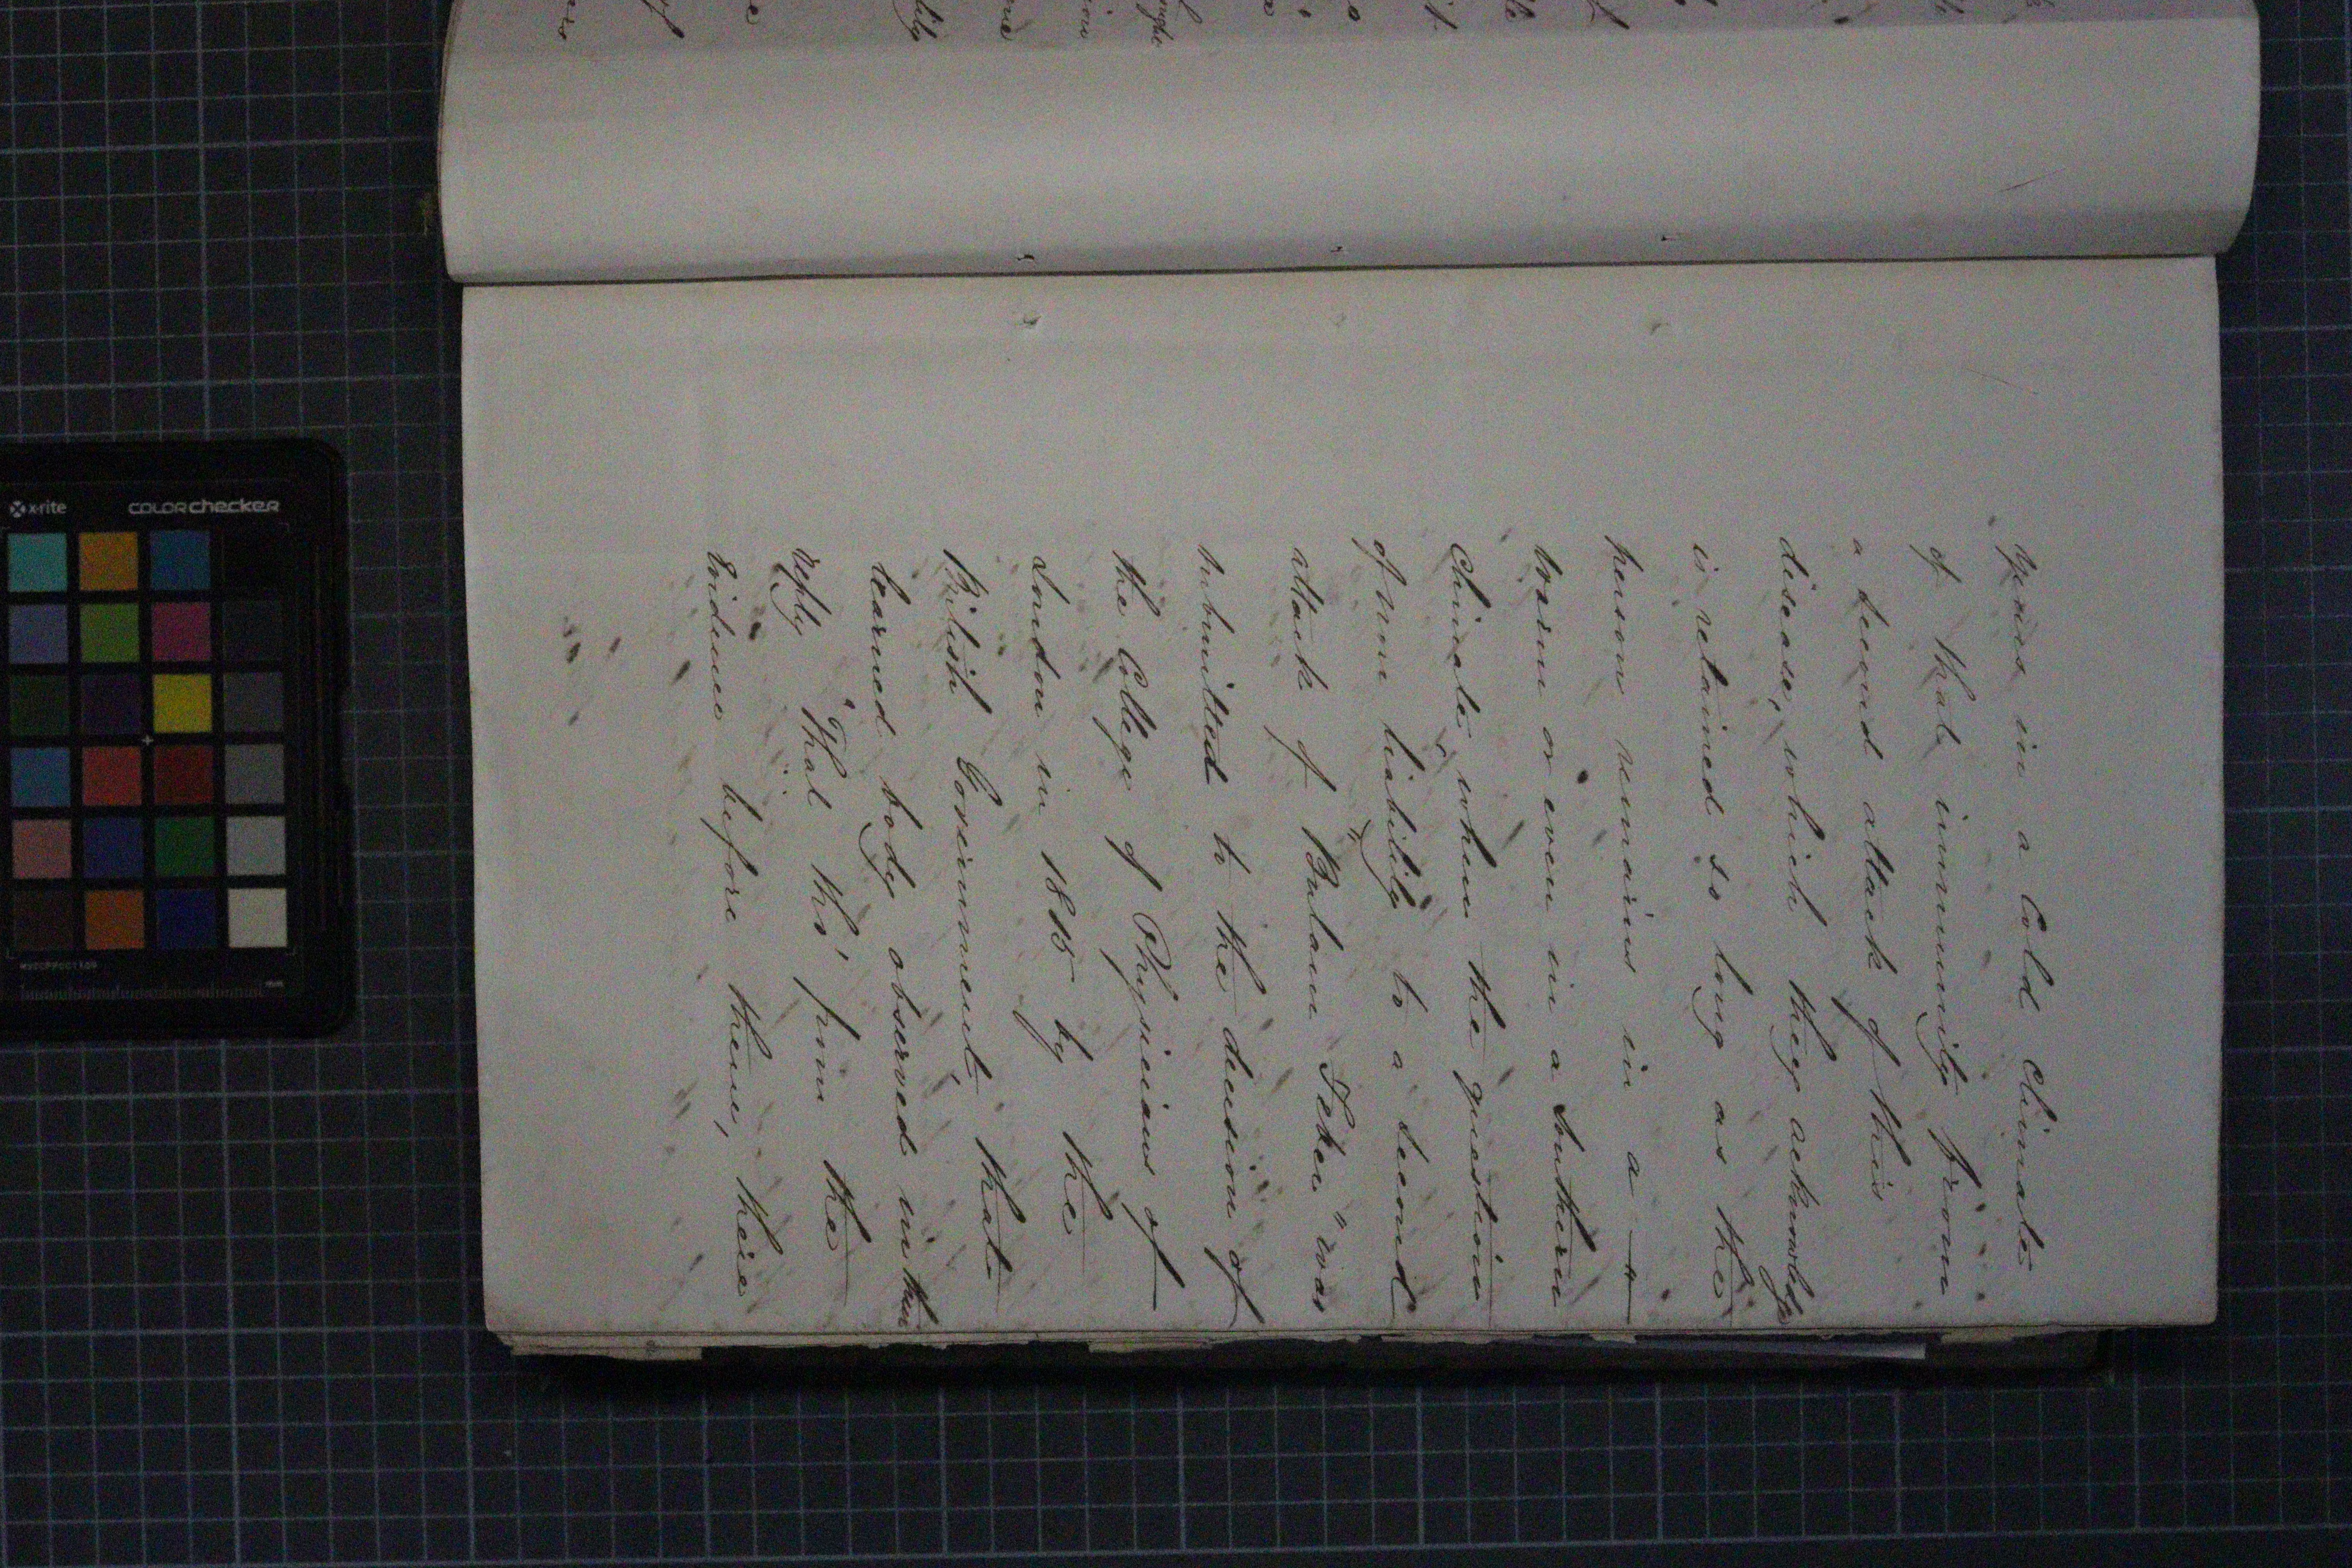 years in a Cold Climate
of that immunity from
a second attack of this
disease, which they acknowledge
is retained so long as the
person remains in a
warm or even in a Southern
Climate, when the question
of non liability to a second
attack of Bulam Fever" was
submitted to the decision of
the College of Physicians of
London in 1815 by the
British Government, that
learned body observed in their
reply "That tho' from the
Evidence before them, there
x-rite
colorchecker